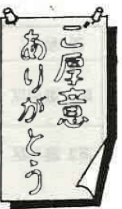 ご厚意
ありがとう